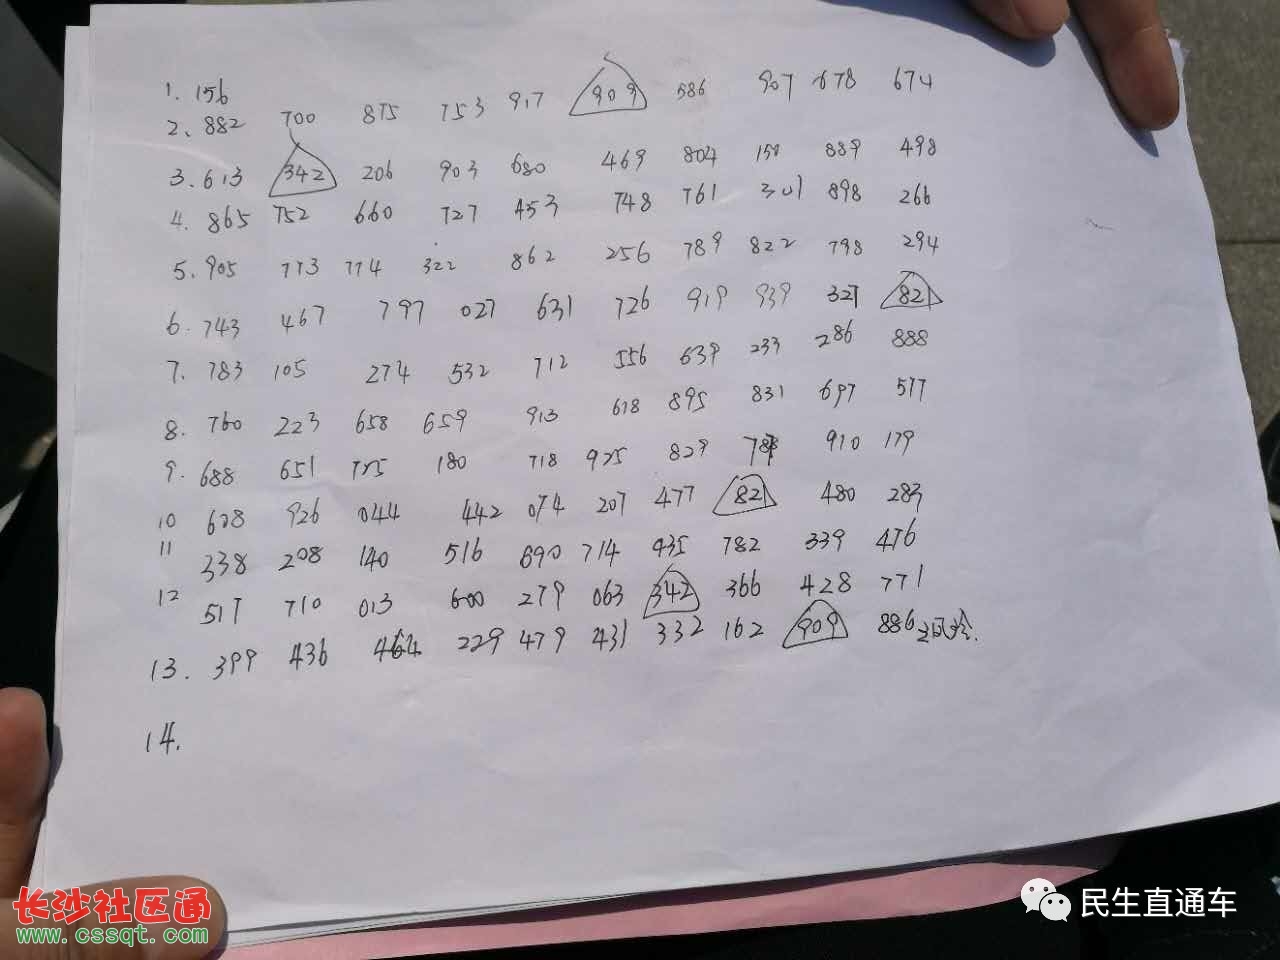 1. 156
2、882 700 875 753 917 909 586 907 678 674
3. 613 342 206 903 680 469 804 150 889 498
4. 865 752 660 727 453 748 761 301 898 266
5. 905 773 774 322 862 256 789 822 798 294
6. 743 467 797 027 631 726 919 939 327 821
7. 783 105 274 532 712 556 639 233 286 888
8. 760 223 658 659 913 618 895 831 697 577
9. 688 651 180 718 925 829 910 179
10 926 044 442 074 207 477 821 480 283
11 338 208 140 516 690 714 435 782 339 476
12 517 710 013 600 279 063 342 366 428 771
13. 399 436 464 229 479 431 332 162 909 886
14.
长沙社区通
www.cssqt.com
民生直通车